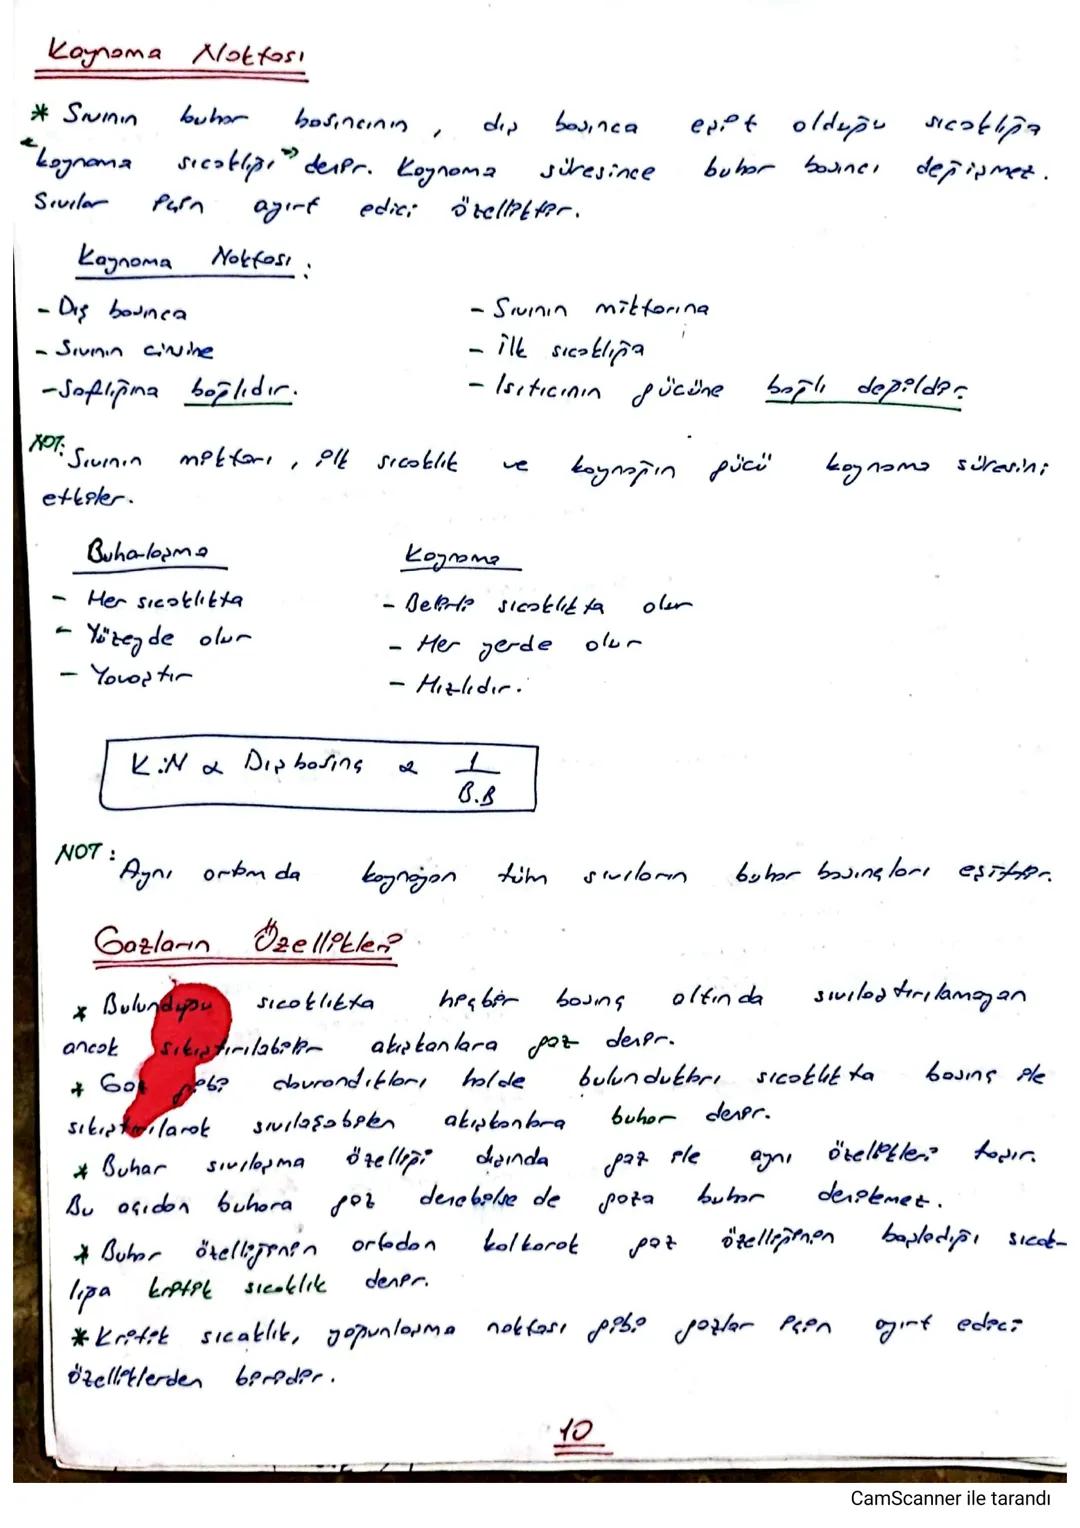 Kaynama Noktası
* Sıvının buhar basıncının, dış basınca eşit olduğu sıcaklığa
"kaynama sıcaklığı" denir. Kaynama süresince buhar basıncı değişmez.
Sıvılar için ayırt edici özelliktir.
Kaynama Noktası:
- Dış basınca
- Sıvının cinsine
- Saflığına bağlıdır.
- Sıvının miktarına
- ilk sıcaklığa
- Isıtıcının gücüne bağlı değildir.
NOT: Sıvının miktarı, ilk sıcaklık ve kaynağın gücü kaynama süresini
etkiler.
Buharlaşma
- Her sıcaklıkta
- Yüzeyde olur
- Yavaştır
Kaynama
- Belirli sıcaklıkta olur
- Her yerde olur
- Hızlıdır.
K.N α Dış basınç α 1/B.B
NOT: Aynı ortamda kaynayan tüm sıvıların buhar basınçları eşittir.
Gazların Özellikleri
* Bulunduğu sıcaklıkta hiçbir basınç altında sıvılaştırılamayan
ancak sıkıştırılabilir akışkanlara gaz denir.
* Gaz gibi davrandıkları halde bulundukları sıcaklıkta basınç ile
sıkıştırılarak sıvılaşabilen akışkanlara buhar denir.
* Buhar sıvılaşma özelliği dışında gaz ile aynı özellikleri taşır.
Bu açıdan buhara gaz denebilse de gaza buhar denilemez.
* Buhar özelliğinin ortadan kalkarak gaz özelliğinin başladığı sıcak-
lığa kritik sıcaklık denir.
* Kritik sıcaklık, yoğunlaşma noktası gibi gazlar için ayırt edici
özelliklerden biridir.
10
CamScanner ile tarandı